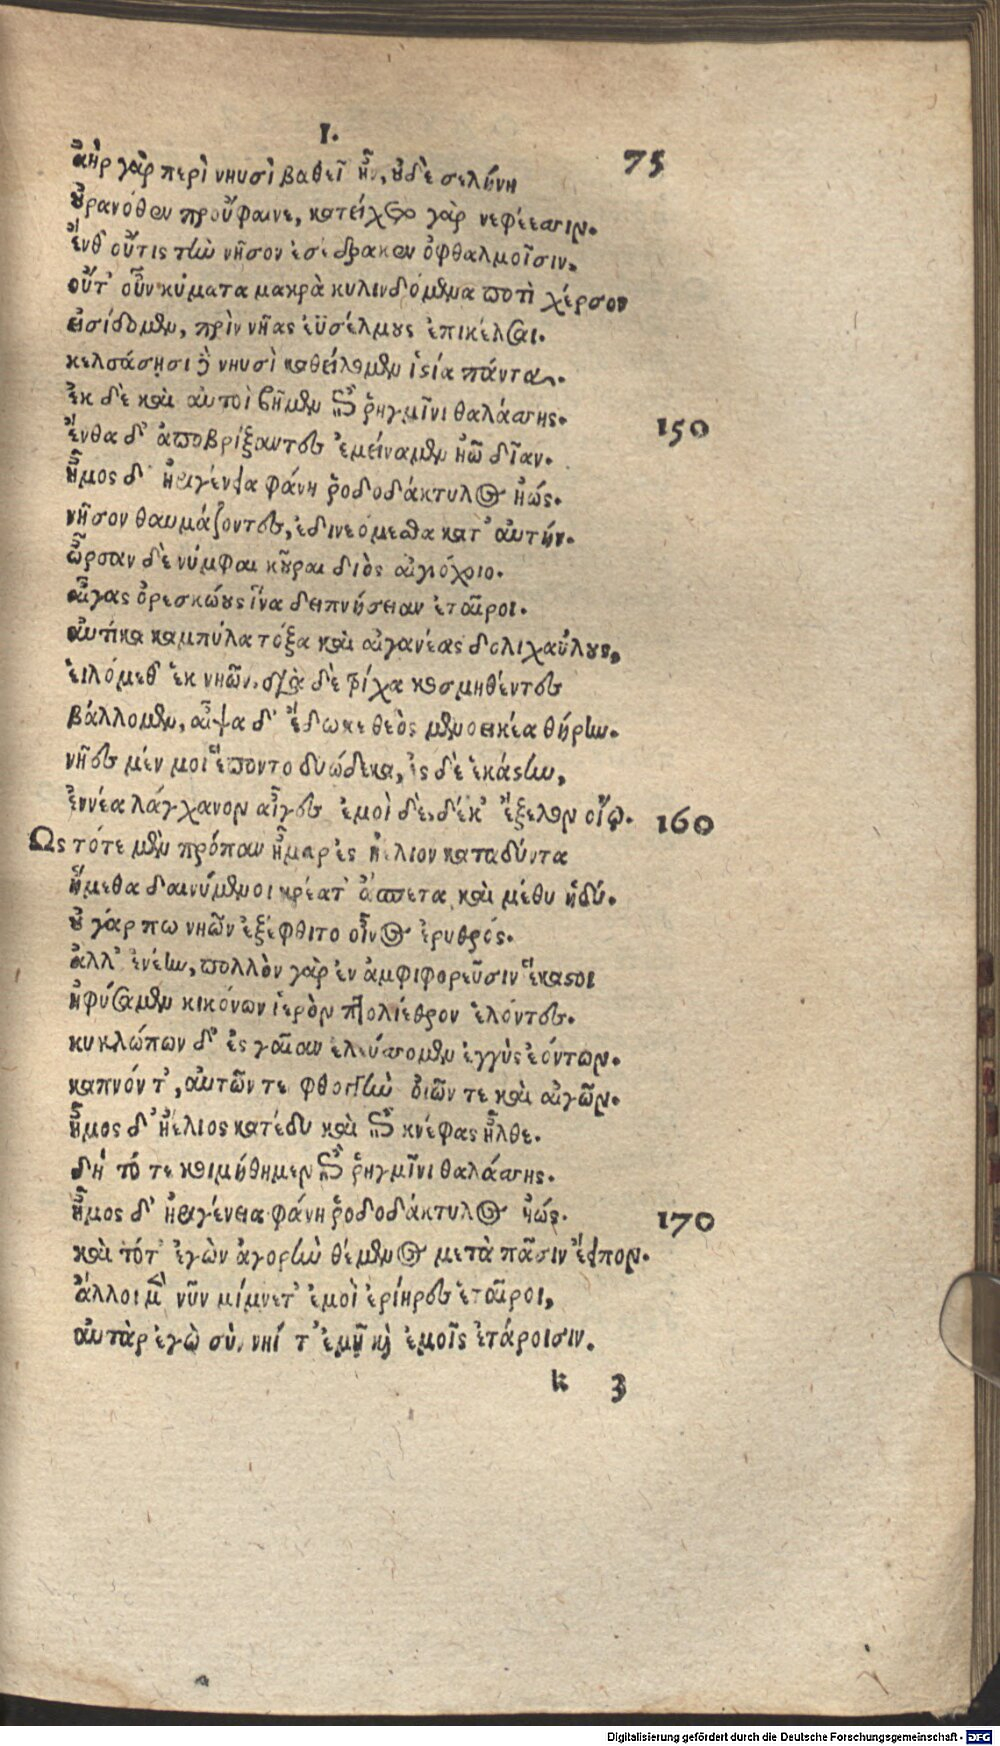 I.
75
ἀὴρ γὰρ περὶ νηυσὶ βαθεῖ ἦν, οὐδὲ σελήνη
οὐρανόθεν προὔφαινε, κατείχετο γὰρ νεφέεσσιν.
ἔνθ' οὔτις τὴν νῆσον ἐσέδρακεν ὀφθαλμοῖσιν,
οὔτ' οὖν κύματα μακρὰ κυλινδόμενα ποτὶ χέρσον
εἰσίδομεν, πρὶν νῆας ἐϋσέλμους ἐπικέλσαι.
κελσάσησι δὲ νηυσὶ καθείλομεν ἱστία πάντα.
ἐκ δὲ καὶ αὐτοὶ βῆμεν ἐπὶ ῥηγμῖνι θαλάσσης.
150
ἔνθα δ' ἀποβρίξαντες ἐμείναμεν ἠῶ δῖαν.
ἦμος δ' ἠριγένεια φάνη ῥοδοδάκτυλος ἠώς.
νῆσον θαυμάζοντες, ἐδινεόμεσθα κατ' αὐτήν.
ὦρσαν δὲ νύμφαι κοῦραι διὸς αἰγιόχοιο.
αἶγας ὀρεσκώους ἵνα δειπνήσειαν ἑταῖροι.
αὐτίκα καμπύλα τόξα καὶ αἰγανέας δολιχαύλους,
εἱλόμεθ' ἐκ νηῶν, διὰ δὲ τρίχα κοσμηθέντες
βάλλομεν, αἶψα δ' ἔδωκε θεὸς μενοεικέα θήρην.
νῆες μέν μοι ἕποντο δυώδεκα, ἐς δὲ ἑκάστην,
ἐννέα λάγχανον αἶγες ἐμοὶ δὲ, δέκ' ἔξελον οἴῳ.
160
Ὣς τότε μὲν πρόπαν ἦμαρ ἐς ἠέλιον καταδύντα
ἥμεθα δαινύμενοι κρέατ' ἄσπετα καὶ μέθυ ἡδύ.
οὐ γάρ πω νηῶν ἐξέφθιτο οἶνος ἐρυθρός.
ἀλλ' ἐνέην, πολλὸν γὰρ ἐν ἀμφιφορεῦσιν ἕκαστοι
ἠφύσαμεν κικόνων ἱερὸν πτολίεθρον ἑλόντες.
κυκλώπων δ' ἐς γαῖαν ἐλεύσσομεν ἐγγὺς ἐόντων.
καπνόν τ', αὐτῶν τε φθογγὴν ὀιῶν τε καὶ αἰγῶν.
ἦμος δ' ἠέλιος κατέδυ καὶ ἐπὶ κνέφας ἦλθε.
δὴ τό τε κοιμήθημεν ἐπὶ ῥηγμῖνι θαλάσσης.
ἦμος δ' ἠριγένεια φάνη ῥοδοδάκτυλος ἠώς.
170
καὶ τότ' ἐγὼν ἀγορὴν θέμενος μετὰ πᾶσιν ἔειπον.
ἄλλοι μὲν νῦν μίμνετ' ἐμοὶ ἐρίηρες ἑταῖροι,
αὐτὰρ ἐγὼ σὺν νηί τ' ἐμῇ καὶ ἐμοῖς ἑτάροισιν.
k 3
Digitalisierung gefördert durch die Deutsche Forschungsgemeinschaft - DFG